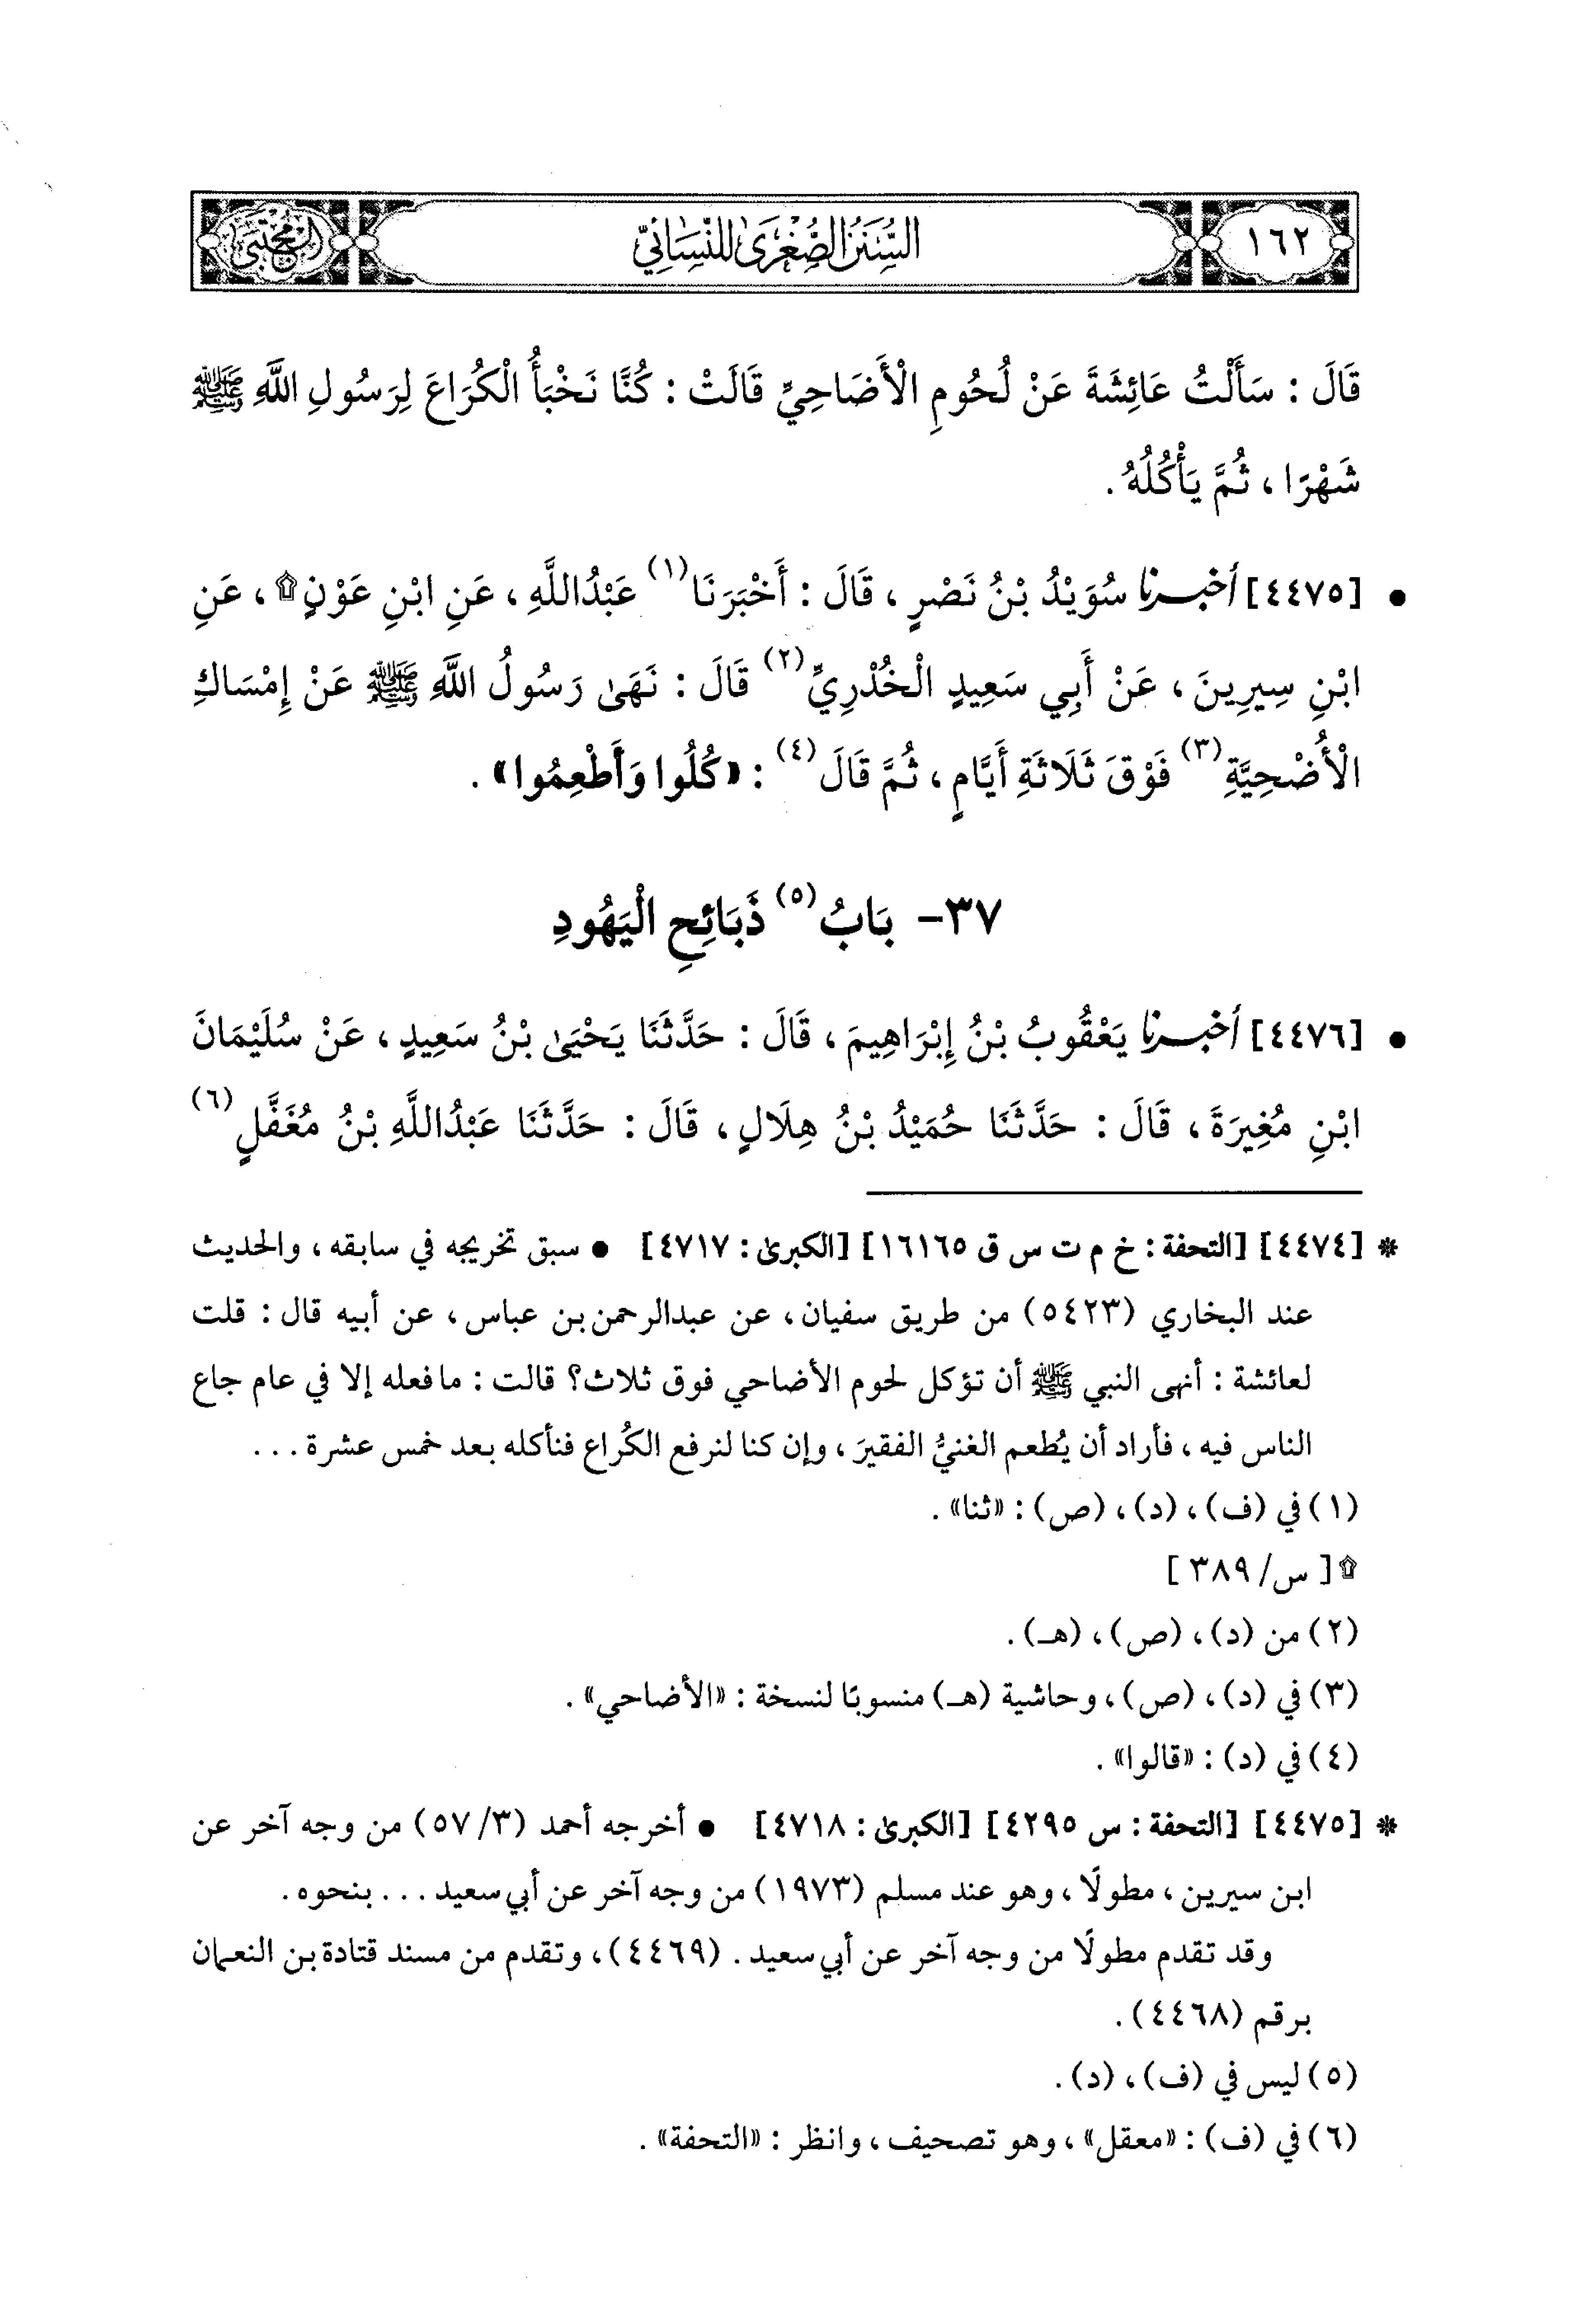 ١٦٢
السُّنَنُ الصُّغْرَىٰ لِلنَّسَائِيِّ
المجتبى
قَالَ : سَأَلْتُ عَائِشَةَ عَنْ لُحُومِ الْأَضَاحِيِّ قَالَتْ : كُنَّا نَخْبَأُ الْكُرَاعَ لِرَسُولِ اللَّهِ ﷺ
شَهْرًا ، ثُمَّ يَأْكُلُهُ .
• [٤٤٧٥] أخبرنا سُوَيْدُ بْنُ نَصْرٍ ، قَالَ : أَخْبَرَنَا (١) عَبْدُاللَّهِ ، عَنِ ابْنِ عَوْنٍ ۩ ، عَنِ
ابْنِ سِيرِينَ ، عَنْ أَبِي سَعِيدٍ الْخُدْرِيِّ (٢) قَالَ : نَهَىٰ رَسُولُ اللَّهِ ﷺ عَنْ إِمْسَاكِ
الْأُضْحِيَّةِ (٣) فَوْقَ ثَلَاثَةِ أَيَّامٍ ، ثُمَّ قَالَ (٤) : «كُلُوا وَأَطْعِمُوا» .
٣٧- بَابُ (٥) ذَبَائِحِ الْيَهُودِ
• [٤٤٧٦] أخبرنا يَعْقُوبُ بْنُ إِبْرَاهِيمَ ، قَالَ : حَدَّثَنَا يَحْيَىٰ بْنُ سَعِيدٍ ، عَنْ سُلَيْمَانَ
ابْنِ مُغِيرَةَ ، قَالَ : حَدَّثَنَا حُمَيْدُ بْنُ هِلَالٍ ، قَالَ : حَدَّثَنَا عَبْدُاللَّهِ بْنُ مُغَفَّلٍ (٦)
* [٤٤٧٤] [التحفة : خ م ت س ق ١٦١٦٥] [الكبرىٰ : ٤٧١٧] • سبق تخريجه في سابقه ، والحديث
عند البخاري (٥٤٢٣) من طريق سفيان ، عن عبدالرحمن بن عباس ، عن أبيه قال : قلت
لعائشة : أنهى النبي ﷺ أن تؤكل لحوم الأضاحي فوق ثلاث؟ قالت : ما فعله إلا في عام جاع
الناس فيه ، فأراد أن يُطعم الغنيُّ الفقيرَ ، وإن كنا لنرفع الكُراع فنأكله بعد خمس عشرة . . .
(١) في (ف) ، (د) ، (ص) : «ثنا» .
۩ [ س/ ٣٨٩ ]
(٢) من (د) ، (ص) ، (هـ) .
(٣) في (د) ، (ص) ، وحاشية (هـ) منسوبًا لنسخة : «الأضاحي» .
(٤) في (د) : «قالوا» .
* [٤٤٧٥] [التحفة : س ٤٢٩٥] [الكبرىٰ : ٤٧١٨] • أخرجه أحمد (٣/ ٥٧) من وجه آخر عن
ابن سيرين ، مطولًا ، وهو عند مسلم (١٩٧٣) من وجه آخر عن أبي سعيد . . . بنحوه .
وقد تقدم مطولًا من وجه آخر عن أبي سعيد . (٤٤٦٩) ، وتقدم من مسند قتادة بن النعمان
برقم (٤٤٦٨) .
(٥) ليس في (ف) ، (د) .
(٦) في (ف) : «معقل» ، وهو تصحيف ، وانظر : «التحفة» .